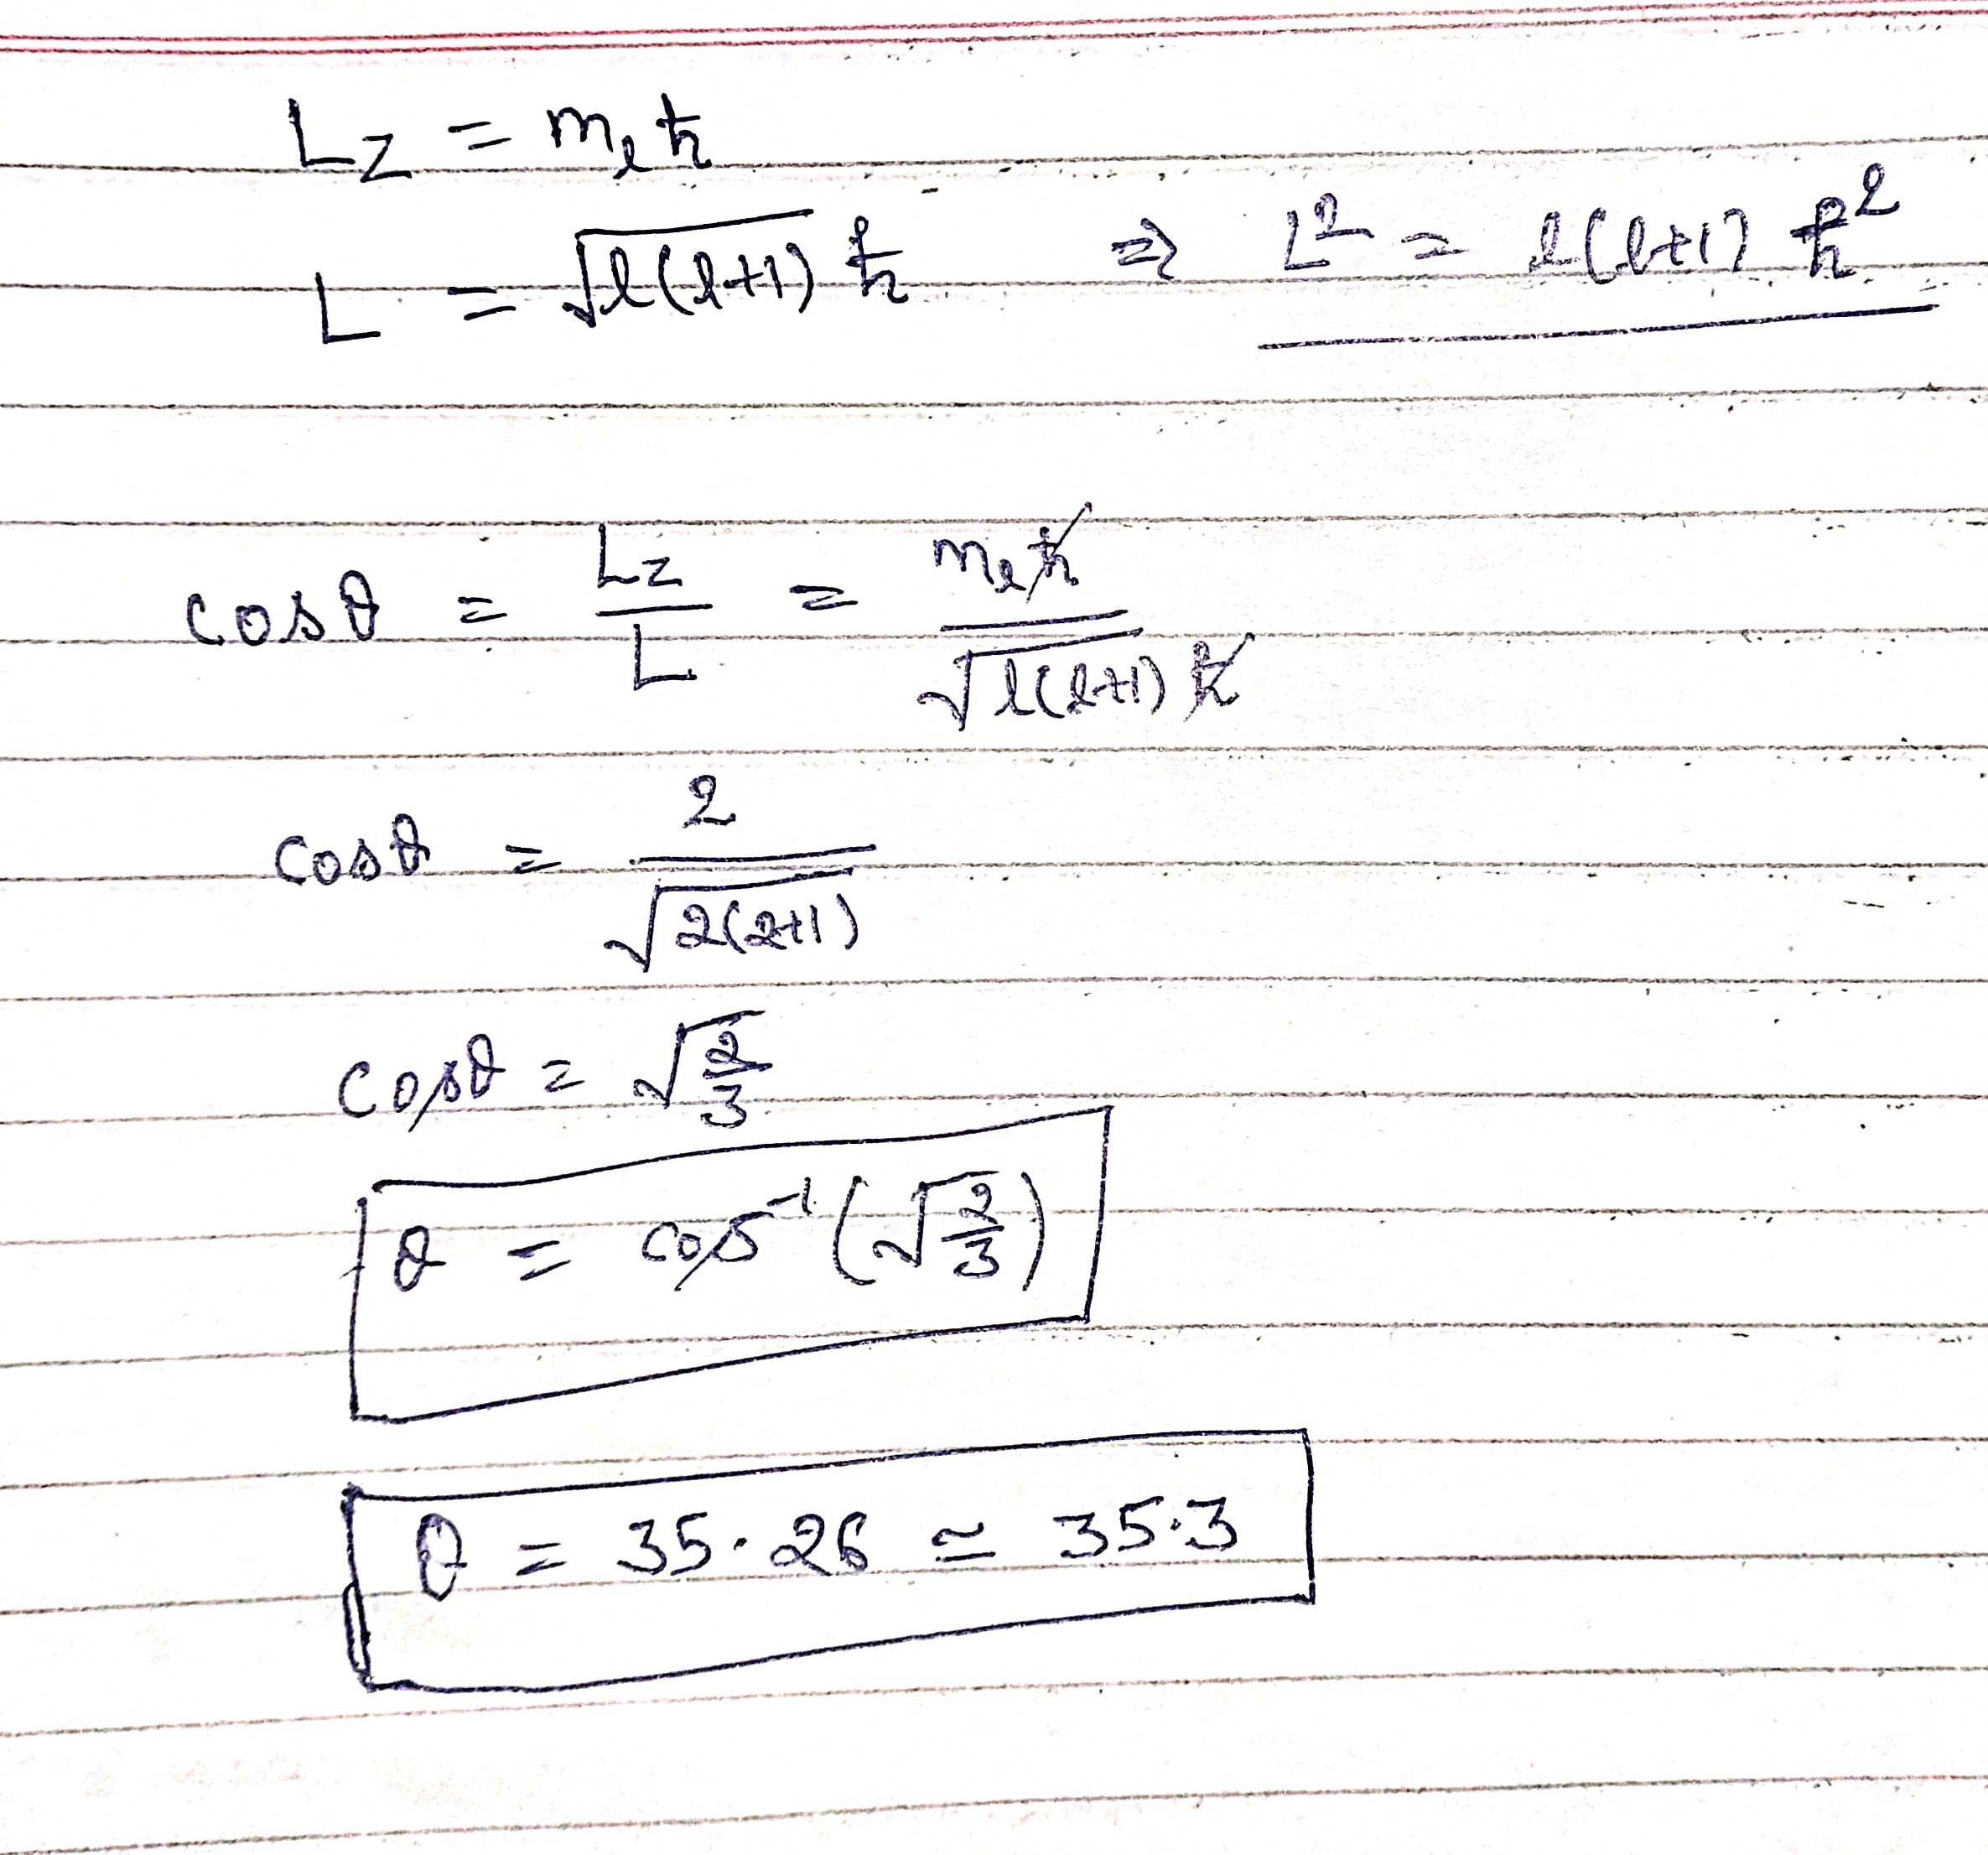 L_z = m_l ħ
L = √(l(l+1)) ħ ⇒ L² = l(l+1) ħ²
cosθ = L_z/L = m_l ħ / √(l(l+1)) ħ
cosθ = 2/√(2(2+1))
cosθ = √(2/3)
θ = cos⁻¹(√(2/3))
θ = 35.26 ≃ 35.3